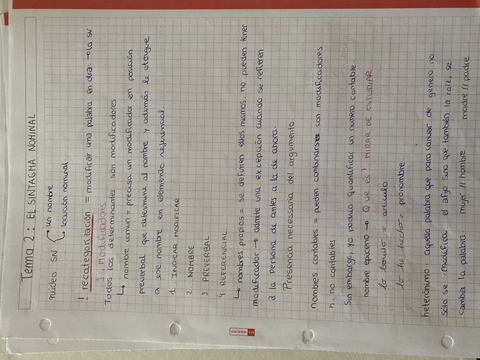 Tema 2: EL SINTAGMA NOMINAL
núcleo SN un nombre
locución nominal
! recategorización = modificar una palabra en otra. → la SN
! modificadores
Todos los determinantes son modificadores
↳ nombre común = precisa un modificador en posición
preverbal que determine al nombre y además le otorgue
a ese nombre en elemento referencial
1. INDICAR MODIFICAR
2. NOMBRE
3. PREVERBAL
4. REFERENCIAL
↳ nombres propios = se definen ellos mismos, no pueden tener
modificador → admite una excepción cuando se refieren
a la persona de antes a la de ahora.
Presencia necesaria del argumento
Nombres contables = pueden combinarse con modificadores
n. no contables
Sin embargo, yo podría cuantificar un número contable
nombre epiceno → QUE ES? MIRAR DE ESTUDIAR
lo bonito = artículo
lo he hecho = pronombre
heterónimo: aquella palabra que para variar de género no
sólo se modifica el afijo sino que también la raíz, se
cambia la palabra mujer // hombre madre // padre